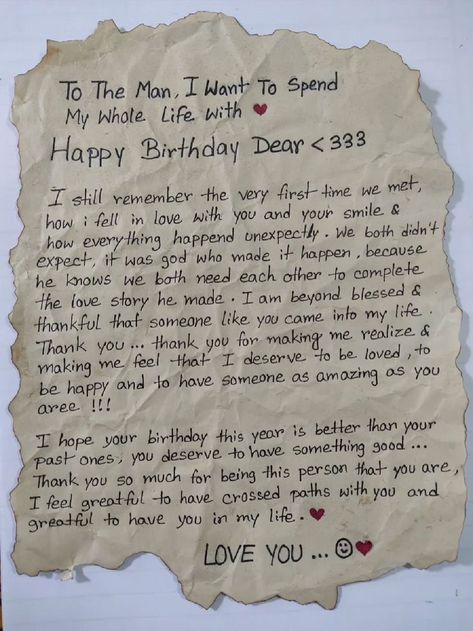 To The Man, I Want To Spend
My Whole Life With ❤
Happy Birthday Dear <333
I still remember the very first time we met,
how i fell in love with you and your smile &
how everything happend unexpectly. We both didn't
expect, it was god who made it happen, because
he knows we both need each other to complete
the love story he made. I am beyond blessed &
thankful that someone like you came into my life.
Thank you... thank you for making me realize &
making me feel that I deserve to be loved, to
be happy and to have someone as amazing as you
aree !!!
I hope your birthday this year is better than your
past ones, you deserve to have something good...
Thank you so much for being this person that you are,
I feel greatful to have crossed paths with you and
greatful to have you in my life. ❤
LOVE YOU ... ☺❤